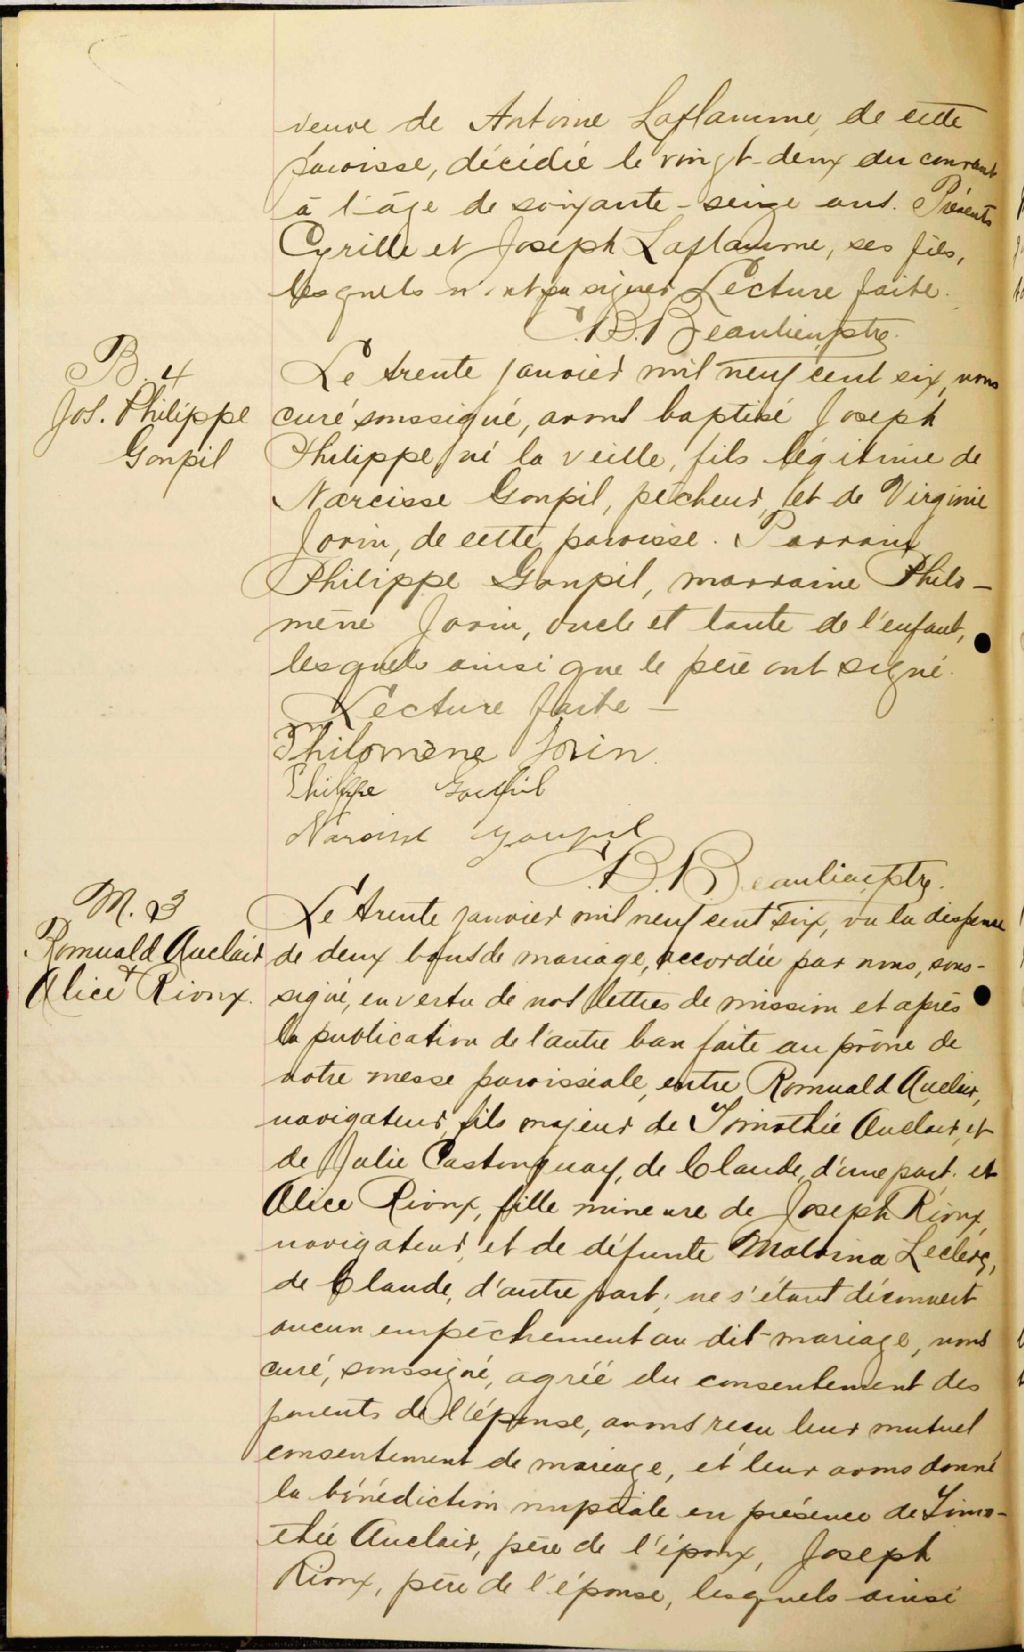 veuve de Antoine Laflamme, de cette
paroisse, décédée le vingt-deux du courant
à l'âge de soixante-seize ans. Présents
Cyrille et Joseph Laflamme, ses fils,
lesquels n'ont pu signer. Lecture faite.
C.B. Beaulieu, ptre.
B. 4
Jos. Philippe
Goupil
Le trente janvier mil neuf cent six, nous
curé soussigné, avons baptisé Joseph
Philippe, né la veille, fils légitime de
Narcisse Goupil, pêcheur, et de Virginie
Jovin, de cette paroisse. Parrain
Philippe Goupil, marraine Philo-
mène Jovin, oncle et tante de l'enfant,
lesquels ainsi que le père ont signé.
Lecture faite —
Philomène Jovin.
Philippe Goupil
Narcisse Goupil
C.B. Beaulieu, ptre.
M. 3
Romuald Auclair
+
Alice Rioux.
Le trente janvier mil neuf cent six, vu la dispense
de deux bans de mariage, accordée par nous, sous-
signé, en vertu de nos lettres de mission et après
la publication de l'autre ban faite au prône de
notre messe paroissiale, entre Romuald Auclair,
navigateur, fils majeur de Timothée Auclair, et
de Julie Castonguay, de Claude, d'une part, et
Alice Rioux, fille mineure de Joseph Rioux,
navigateur, et de défunte Malvina Leclerc,
de Claude, d'autre part; ne s'étant découvert
aucun empêchement au dit mariage, nous
curé, soussigné, agréé du consentement des
parents de l'épouse, avons reçu leur mutuel
consentement de mariage, et leur avons donné
la bénédiction nuptiale en présence de Timo-
thée Auclair, père de l'époux, Joseph
Rioux, père de l'épouse, lesquels ainsi